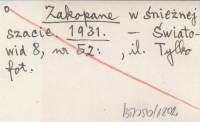 Zakopane w śnieżnej
szacie. 1931. — Świato-
wid 8, nr 52: , il. Tylko
fot.